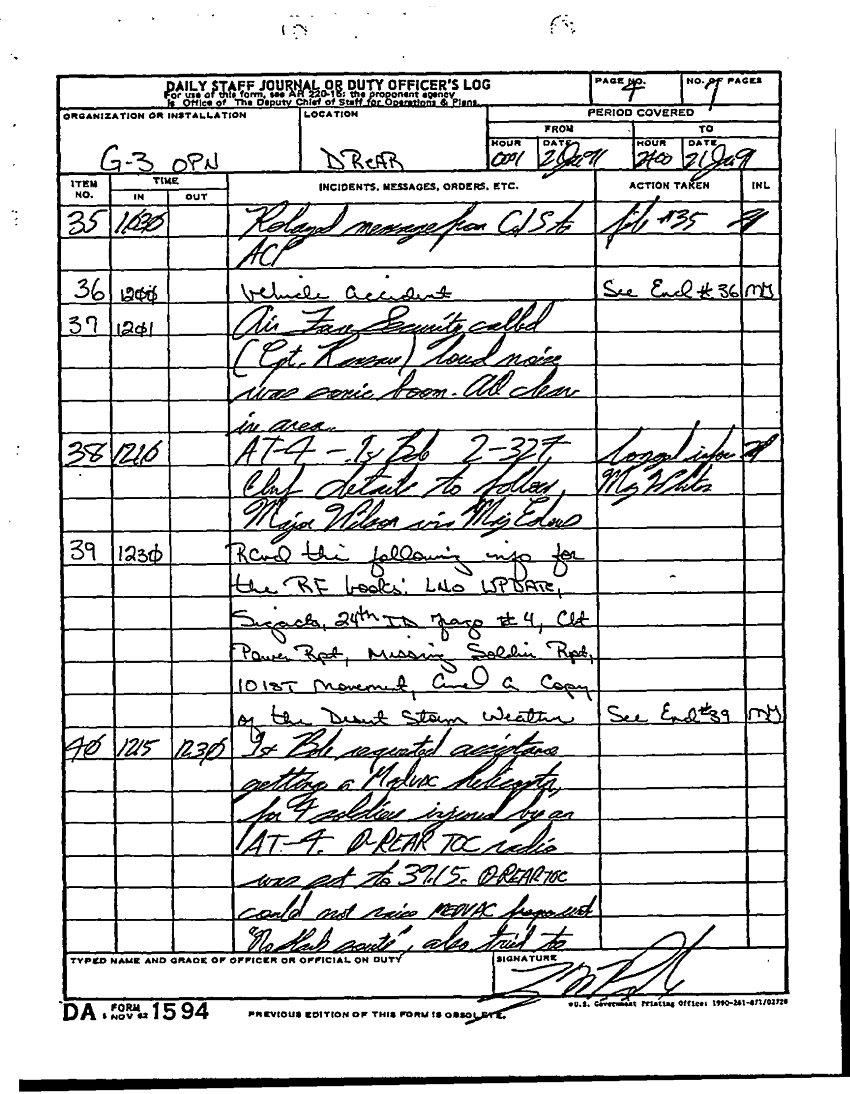 DAILY STAFF JOURNAL OR DUTY OFFICER'S LOG
For use of this form, see AR 220-15; the proponent agency
is Office of The Deputy Chief of Staff for Operations & Plans.
PAGE NO. 4
NO. OF PAGES
ORGANIZATION OR INSTALLATION
G-3 OPN
LOCATION
DREAR
PERIOD COVERED
FROM TO
HOUR DATE HOUR DATE
0001 21 Jan 91 2400 21 Jan 91
ITEM NO. TIME IN OUT INCIDENTS, MESSAGES, ORDERS, ETC. ACTION TAKEN INL
35 1030 message from C/S to file #35
ACP
36 1200 Vehicle accident See Encl #36 MH
37 1201 Air Force Security called
(Cpt. ) loud noise
was sonic boom. All clear
in area.
38 1210 AT-4 - 1st Bde 2-327, logged info
details to follow, Maj
Major Wilson via Maj
39 1230 Rcvd the following info for
the RF books: LNO UPDATE,
24th ID frago #4, Cbt
Power Rpt, Missing Soldier Rpt,
101ST Movement, and a Copy
of the Desert Storm Weather See Encl #39 MH
40 1215 1230 1st Bde requested assistance
getting a Medvac helicopter,
for 4 soldiers injured by an
AT-4. D-REAR TOC radio
was set to 39.15. D-REAR TOC
could not raise MEDVAC freq. went
also tried to
TYPED NAME AND GRADE OF OFFICER OR OFFICIAL ON DUTY
SIGNATURE
DA FORM 1 NOV 62 1594
PREVIOUS EDITION OF THIS FORM IS OBSOLETE.
*U.S. Government Printing Office: 1990-261-871/02720